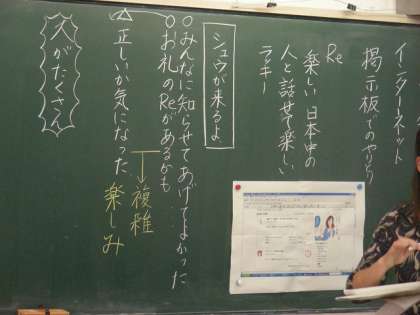 インターネット
掲示板でのやりとり
Re
楽しい 日本中の
人と話せて楽しい
ラッキー
シュウが来るよ
○みんなに知らせてあげてよかった
○お礼のReがあるかも
△正しいか気になった
→複雑
楽しみ
人がたくさん